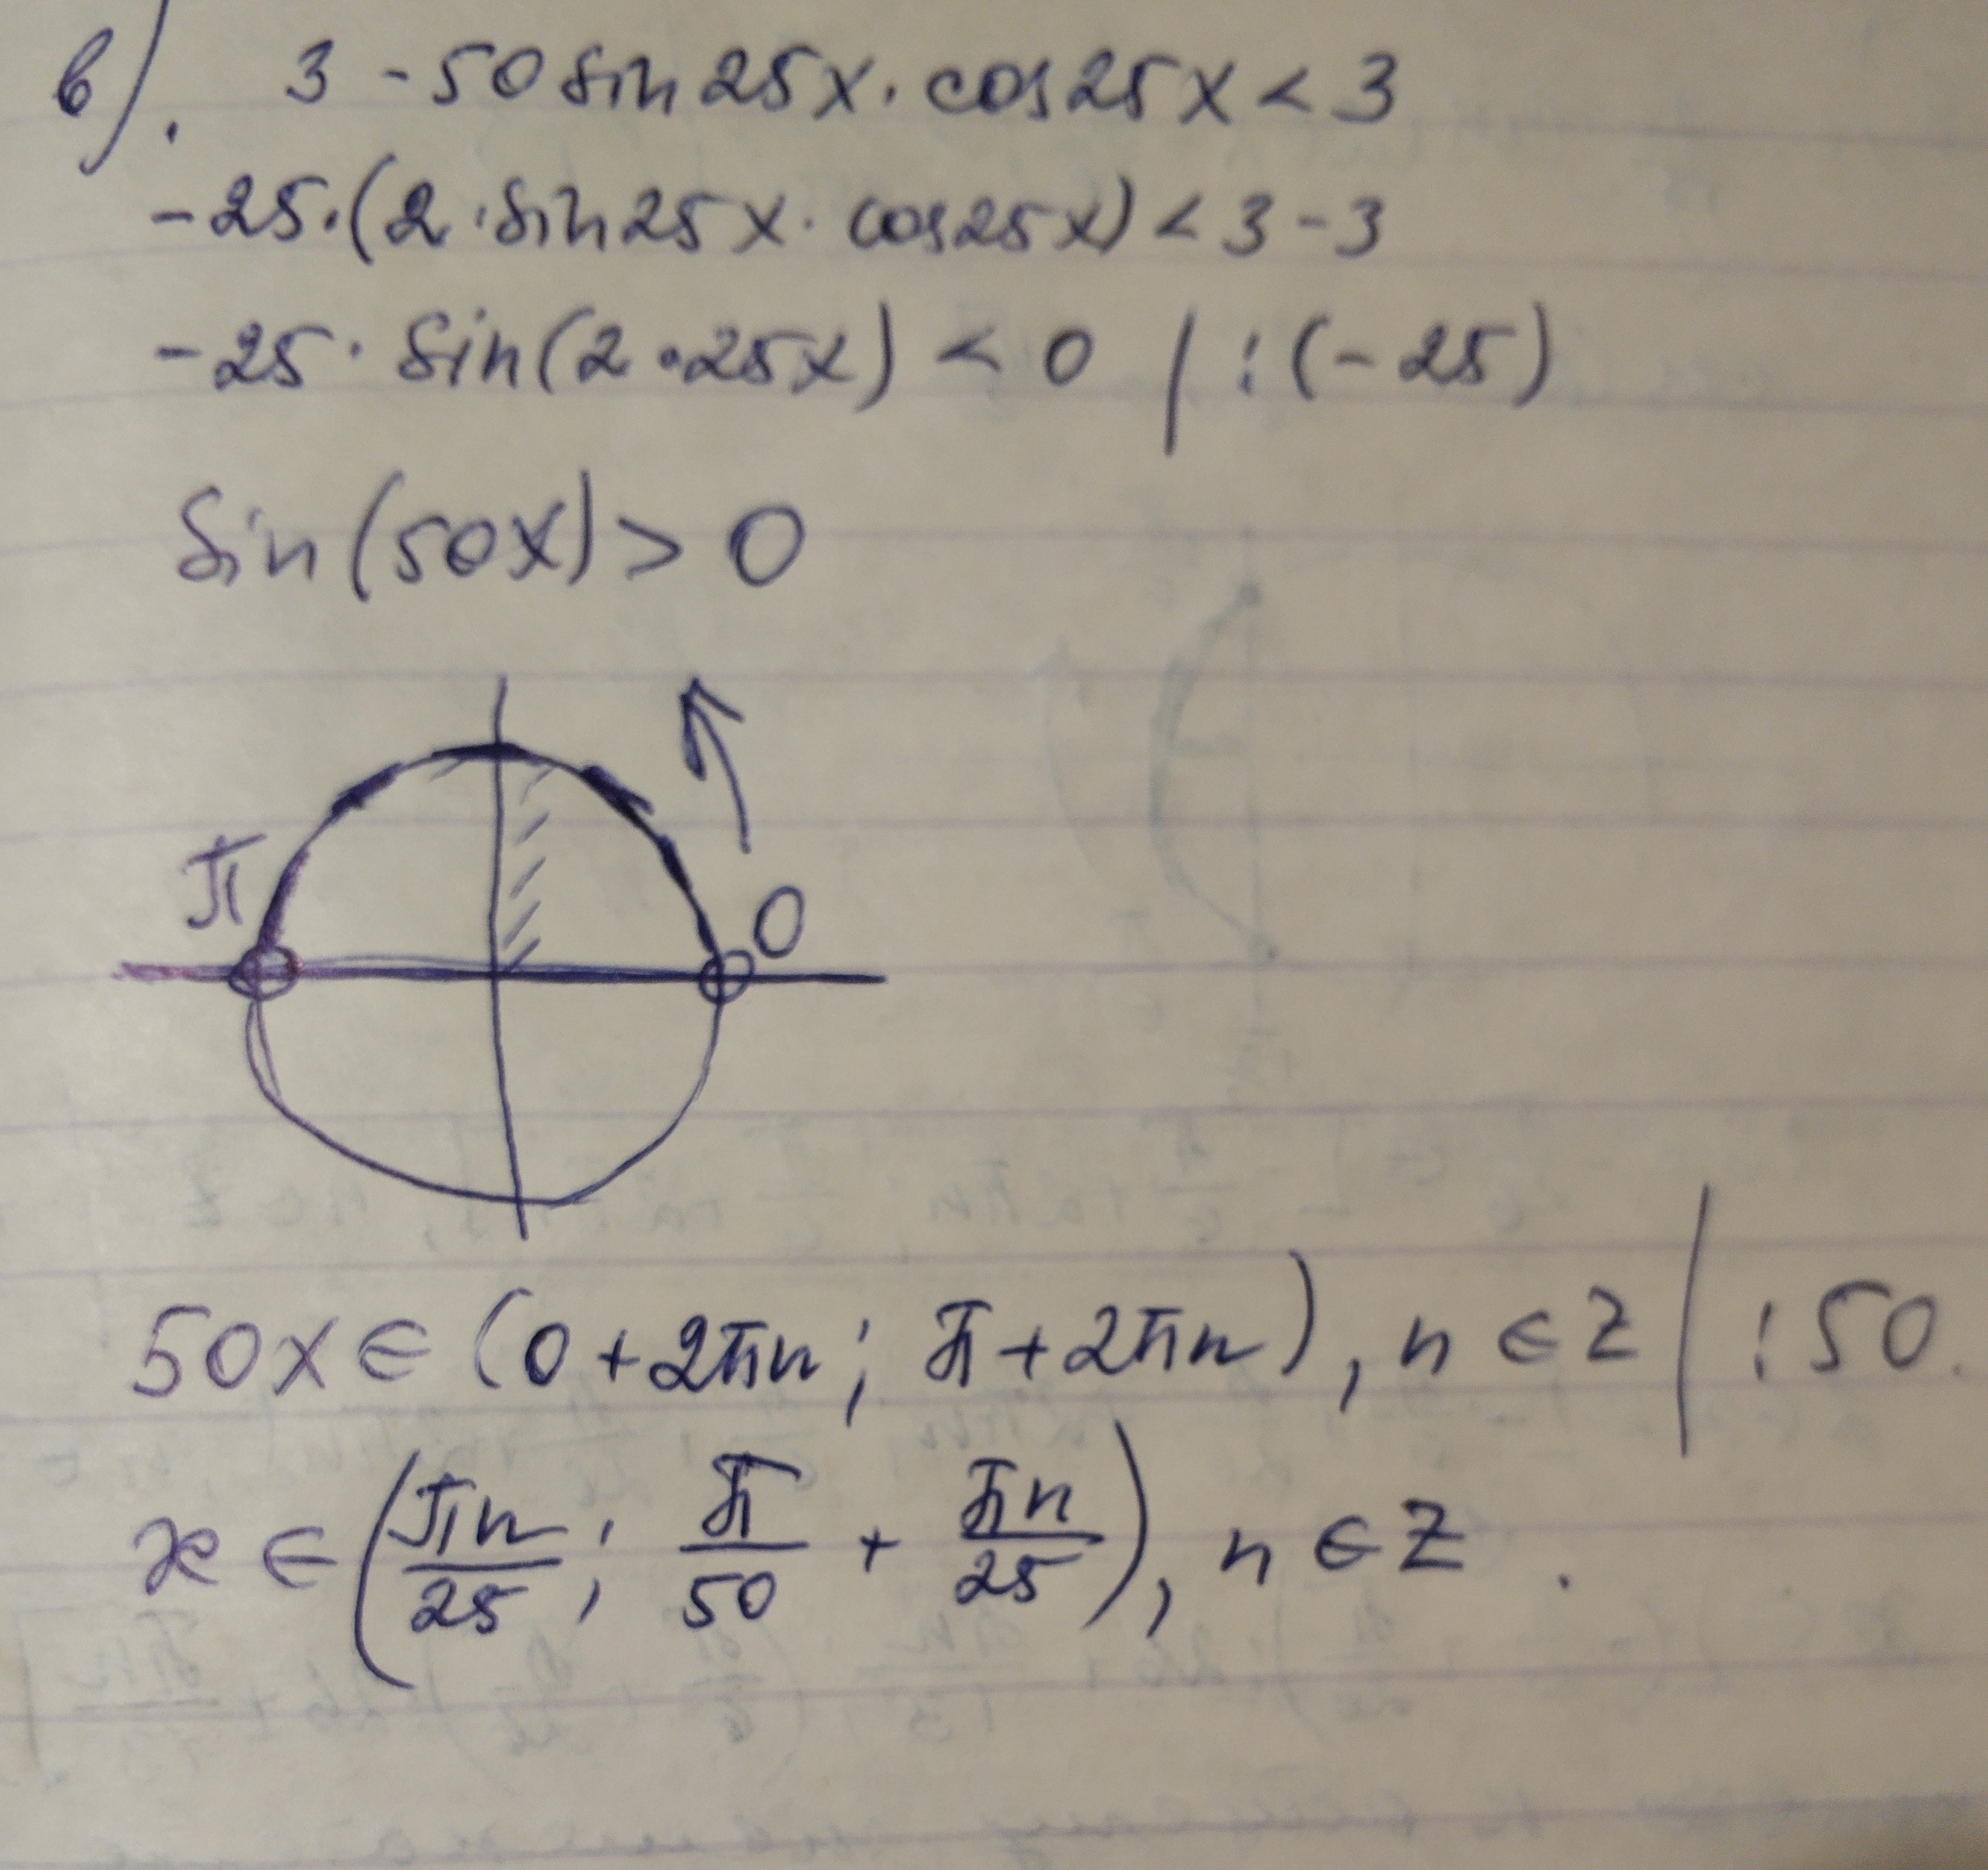 в). 3 - 50 sin 25x · cos 25x < 3
-25·(2 · sin 25x · cos 25x) < 3 - 3
-25 · sin(2 · 25x) < 0 | : (-25)
sin (50x) > 0
π 0
50x ∈ (0 + 2πn ; π + 2πn), n ∈ Z | : 50.
x ∈ (πn/25 ; π/50 + πn/25), n ∈ Z .